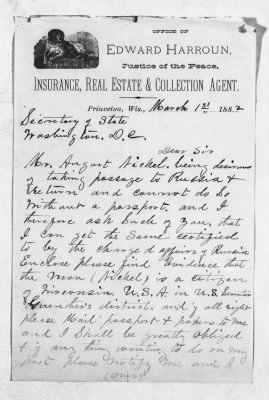 OFFICE OF
EDWARD HARROUN,
Justice of the Peace,
INSURANCE, REAL ESTATE & COLLECTION AGENT.
Princeton, Wis., March 1st 1882
Secretary of State
Washington, D.C.
Dear Sir
Mr. August Nickel, being desirous
of taking passage to Russia &
return and cannot do so
without a passport, and I
therefore ask Such of You, that
I can get the Same certified
to by the charge d affairs of Russia
Enclose please find Evidence that
the Man (Nickel) is a citizen
of Wisconsin, U.S.A. in U.S. Senator
district, and if all right
please Mail passport & papers to Me
and I Shall be greatly obliged
& if any thing wanting to do on my
part please Notify Me and I
(over)